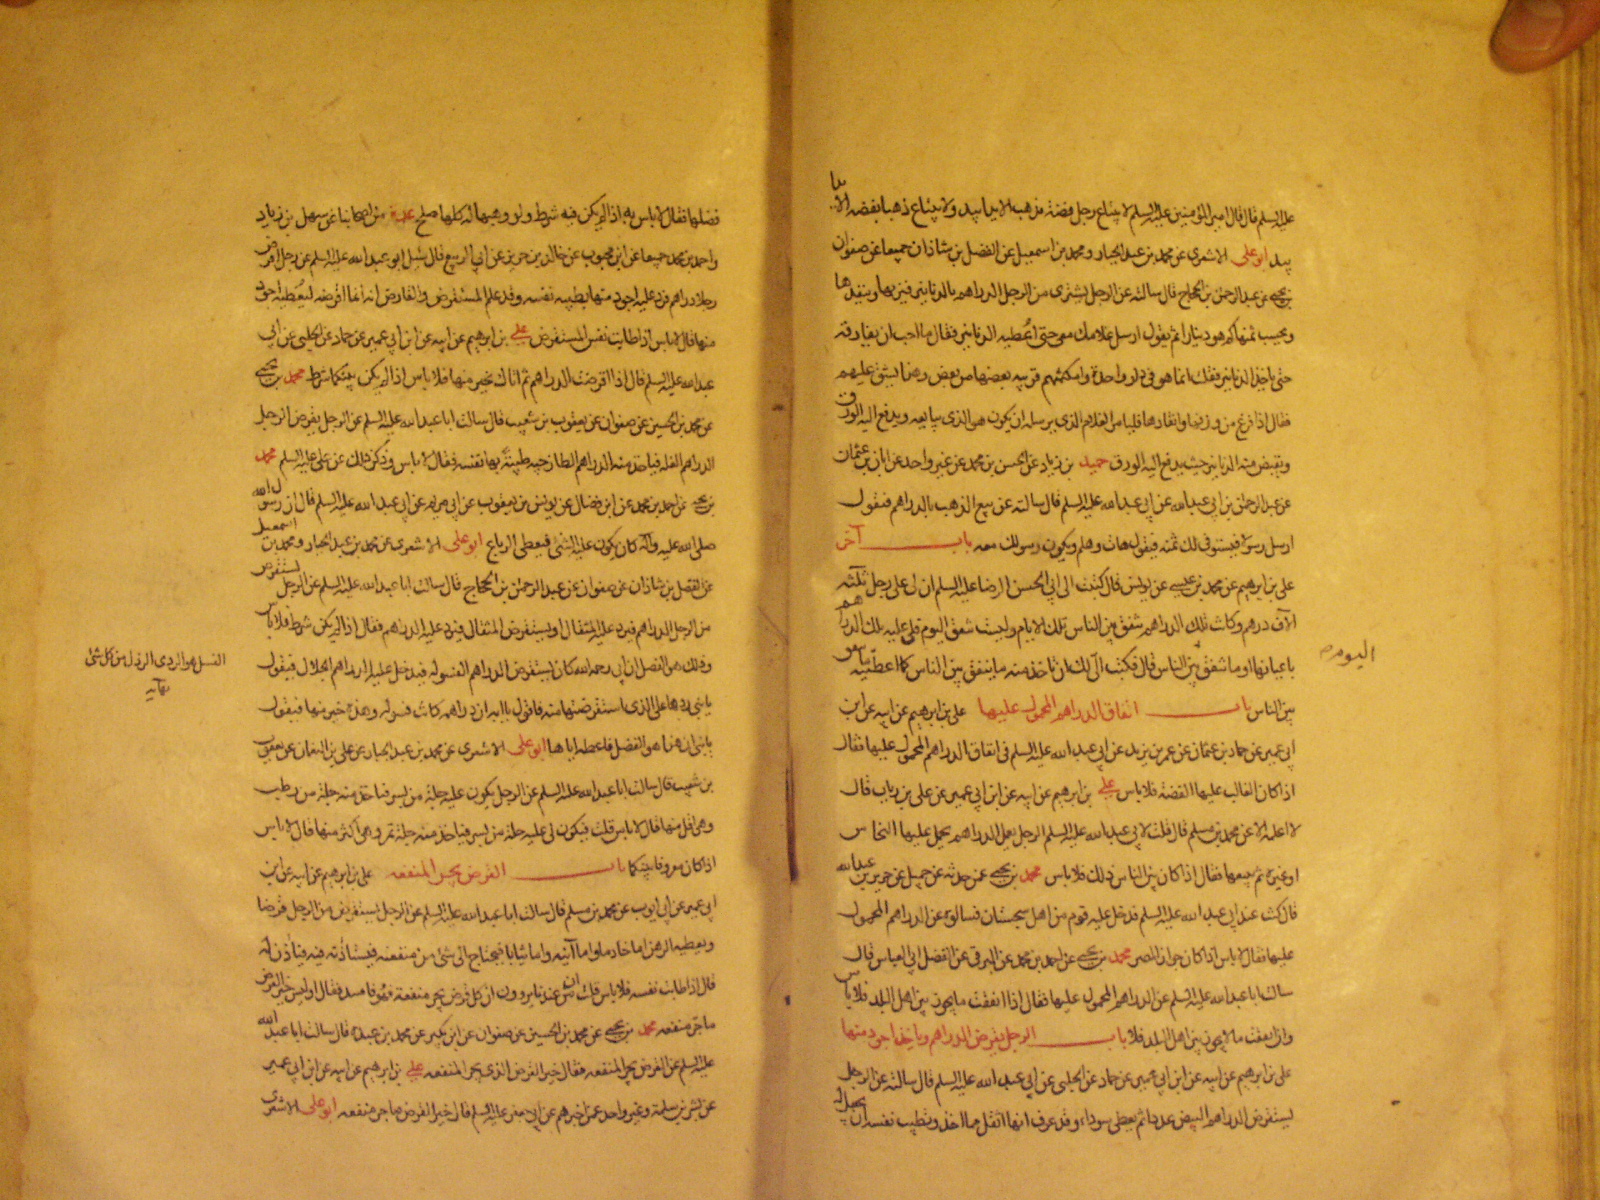 عليه السلم قال قال امير المؤمنين عليه السلم لا يبتاع رجل فضة بذهب الا يدا بيد ولا يبتاع ذهبا بفضة الا يدا
بيد ابو على الاشعرى عن محمد بن عبد الجبار ومحمد بن اسمعيل عن الفضل بن شاذان جميعا عن صفوان
بن يحيى عن عبد الرحمن بن الحجاج قال سالته عن الرجل يشترى من الرجل الدراهم بالدنانير فيزنها وينقدها
ويحسب ثمنها كم هو دينارا ثم يقول ارسل غلامك معى حتى اعطيه الدنانير فقال ما احب ان يفارقه
حتى ياخذ الدنانير فقلت انما هو فى دار واحدة وامكنتهم قريبه بعضها من بعض وهذا يشق عليهم
فقال اذا فرغ من وزنها وانقادها فليامر الغلام الذى يرسله ان يكون هو الذى يبايعه ويدفع اليه الورق
ويقبض منه الدنانير حيث يدفع اليه الورق حميد بن زياد عن الحسن بن محمد عن غير واحد عن ابان بن عثمان
عن عبد الرحمن بن ابى عبد الله عن ابى عبد الله عليه السلم قال سالته عن بيع الذهب بالدراهم فيقول
ارسل رسولا فيستوفى لك ثمنه فيقول هات وهلم ويكون رسولك معه باب آخر
على بن ابرهيم عن محمد بن عيسى عن يونس قال كتبت الى ابى الحسن الرضا عليه السلم ان لى على رجل ثلثة
الآف درهم وكانت تلك الدراهم تنفق بين الناس تلك الايام وليست تنفق اليوم فلى عليه تلك الدراهم
باعيانها او ما ينفق بين الناس قال فكتب الى لك ان تاخذ منه ما ينفق بين الناس كما اعطيته ما ينفق
اليوم
بين الناس باب انفاق الدراهم المحمول عليها على بن ابرهيم عن ابيه عن ابن
ابى عمير عن حماد بن عثمان عن عمر بن يزيد عن ابى عبد الله عليه السلم فى انفاق الدراهم المحمول عليها فقال
اذا كان الغالب عليها الفضة فلا باس على بن ابرهيم عن ابيه عن ابن ابى عمير عن على بن رياب قال
لا اعلمه الا عن محمد بن مسلم قال قلت لابى عبد الله عليه السلم الرجل يعمل الدراهم يحمل عليها النحاس
او غيره ثم يبيعها فقال اذا كان بين الناس ذلك فلا باس محمد بن يحيى عمن حدثه عن جميل عن حريز بن عبد الله
قال كنت عند ابى عبد الله عليه السلم فدخل عليه قوم من اهل سجستان فسالوه عن الدراهم المحمول
عليها فقال لا باس اذا كان جواز المصر محمد بن يحيى عن احمد بن محمد عن البرقى عن الفضل ابى العباس قال
سالت ابا عبد الله عليه السلم عن الدراهم المحمول عليها فقال اذا انفقت ما يجوز بين اهل البلد فلا باس
وان انفقت ما لا يجوز بين اهل البلد فلا باب الرجل يقرض الدراهم وياخذ اجود منها
على بن ابرهيم عن ابيه عن ابن ابى عمير عن حماد عن الحلبى عن ابى عبد الله عليه السلم قال سالته عن الرجل
يستقرض الدراهم البيض عددا ثم يعطى سودا وقد عرف انها اثقل مما اخذ وتطيب نفسه ان يجعل له
فضلها فقال لا باس به اذا لم يكن فيه شرط ولو وهبها له كلها صلح عدة من اصحابنا عن سهل بن زياد
واحمد بن محمد جميعا عن ابن محبوب عن خالد بن جرير عن ابى الربيع قال سئل ابو عبد الله عليه السلم عن رجل اقرض
رجلا دراهم فرد عليه اجود منها بطيبه نفسه وقد علم المستقرض والقارض انه انما اقرضه ليعطيه اجود
منها قال لا باس اذا طابت نفس المستقرض على بن ابرهيم عن ابيه عن ابن ابى عمير عن حماد عن الحلبى عن ابى
عبد الله عليه السلم قال اذا اقرضت الدراهم ثم اتاك بخير منها فلا باس اذا لم يكن بينكما شرط محمد بن يحيى
عن محمد بن الحسين عن صفوان عن يعقوب بن شعيب قال سالت ابا عبد الله عليه السلم عن الرجل يقرض الرجل
الدراهم الغله فياخذ منه الدراهم الطازجيه طيبة بها نفسه فقال لا باس وذكر ذلك عن على عليه السلم محمد
بن يحيى عن احمد بن محمد عن ابن فضال عن يونس بن يعقوب عن ابى مريم عن ابى عبد الله عليه السلم قال ان رسول الله
صلى الله عليه وآله كان يكون عليه الثنى فيعطى الرباع ابو على الاشعرى عن محمد بن عبد الجبار ومحمد بن اسمعيل
عن الفضل بن شاذان عن صفوان عن عبد الرحمن بن الحجاج قال سالت ابا عبد الله عليه السلم عن الرجل يستقرض
من الرجل الدراهم فيرد عليه المثقال ويستقرض المثقال فيرد عليه الدراهم فقال اذا لم يكن شرط فلا باس
وذلك هو الفضل ان ابى رحمه الله كان يستقرض الدراهم الفسوله فيدخل عليه الدراهم الجلال فيقول
الفسل هو الردى الرذل من كل شئ
نهايه
يا بنى ردها على الذى استقرضتها منه فاقول يا ابه ان دراهمه كانت فسوله وهذه خير منها فيقول
يا بنى ان هذا هو الفضل فاعطه اياها ابو على الاشعرى عن محمد بن عبد الجبار عن على بن النعمان عن يعقوب
بن شعيب قال سالت ابا عبد الله عليه السلم عن الرجل يكون عليه جلة من بسر فياخذ منه جلة من رطب
وهى اقل منها قال لا باس قلت فيكون لى عليه جلة من بسر فياخذ منه جلة تمر وهى اكثر منها قال لا باس
اذا كان معروفا بينكما باب القرض يجر المنفعه على بن ابرهيم عن ابيه عن ابن
ابى عمير عن ابى ايوب عن محمد بن مسلم قال سالت ابا عبد الله عليه السلم عن الرجل يستقرض من الرجل قرضا
ويعطيه الرهن اما خادما واما آنية واما ثيابا فيحتاج الى شى من منفعته فيستاذنه فيه فياذن له
قال اذا طابت نفسه فلا باس قلت ان من عندنا يروون ان كل قرض يجر منفعة فهو فاسد فقال او ليس خير القرض
ما جر منفعه محمد بن يحيى عن محمد بن الحسين عن صفوان عن ابن بكير عن محمد بن عبده قال سالت ابا عبد الله
عليه السلم عن القرض يجر المنفعه فقال خير القرض الذى يجر المنفعه على بن ابرهيم عن ابيه عن ابن ابى عمير
عن بشر بن سلمة وغير واحد عمن اخبرهم عن ابى جعفر عليه السلم قال خير القرض ما جر منفعه ابو على الاشعرى